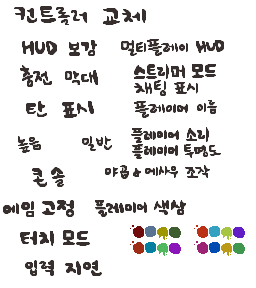 컨트롤러 교체
HUD 보감 멀티플레이 HUD
충전 막대 스트리머 모드
채팅 표시
탄 표시 플레이어 이름
높음 일반 플레이어 소리
플레이어 투명도
콘솔 야곱 & 에사우 조작
에임 고정 플레이어 색상
터치 모드
입력 지연